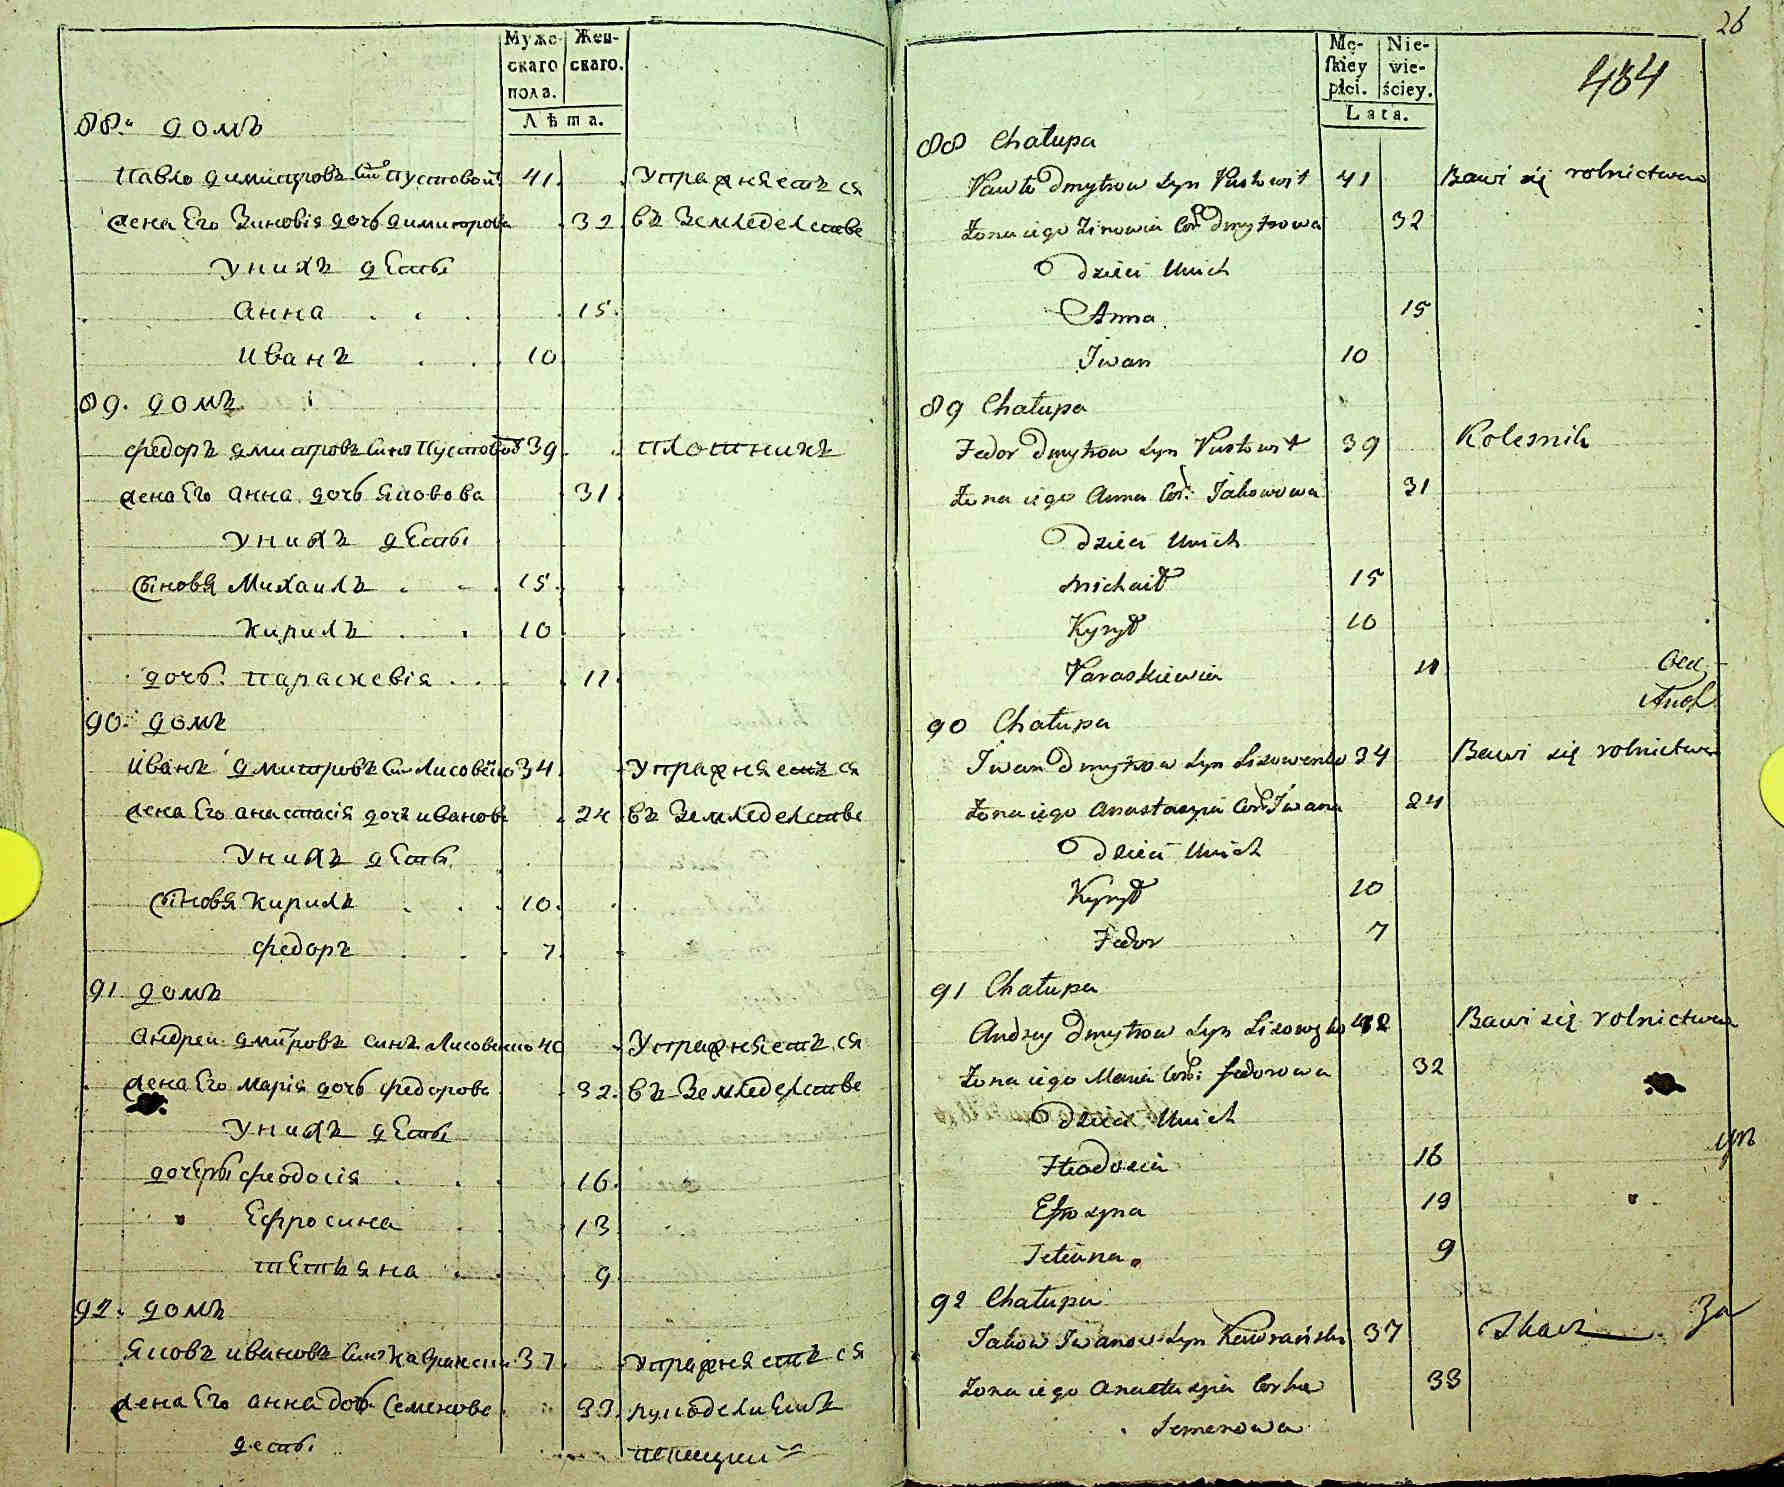 Мужескаго пола.
Женскаго.
Лѣта.
88. домъ
Павло димитровъ Сынъ Пустовой 41. Упражняется
жена Его Зиновія дочь димитрова 32. въ Земледелстве
Унихъ дети
Анна 15.
Иванъ 10
89. домъ
Федоръ дмитровъ Синъ Пустовой 39 плотникъ
жена Его анна дочь яковова 31
Унихъ дети
Сыновя Михаилъ 15.
Кирилъ 10
дочь Параскевія 11
90. домъ
Иванъ дмитровъ Синъ Лисовенко 34. Упражняется
жена Его анастасія дочь иванова 24 въ Земледелстве
Унихъ дети
Сыновя Кирилъ 10.
Федоръ 7
91 домъ
Андрей дмитровъ синъ Лисовенко 40 Упражняется
жена Его Марія дочь Федорова 32. въ Земледелстве
Унихъ дети
дочеры Феодосія 16.
Ефросина 13
Тетьяна 9
92. домъ
Яковъ ивановъ Синъ Каврански 37 Упражняется
жена Его анна дочь Семенова 33. рукоделиемъ
дети
26
434
Mę-skiey płci.
Nie-wieściey.
Lata.
88 Chałupa
Pawło Dmytrow Syn Pustowit 41 Bawi się rolnictwem
Żona iego Zinowia Cor: Dmytrowa 32
Dzieci Unich
Anna 15
Iwan 10
89 Chałupa
Fedor Dmytrow Syn Pustowit 39 Kolesnik
Żona iego Anna Cor: Jakowowa 31
Dzieci Unich
Michaił 15
Kyrył 10
Paraskiewia 11
90 Chałupa
Iwan Dmytrow Syn Lisowenko 34 Bawi się rolnictwem
Żona iego Anastazyia Cor: Iwana 24
Dzieci Unich
Kyrył 10
Fedor 7
91 Chałupa
Andrzy Dmytrow Syn Lisowenko 42 Bawi się rolnictwem
Żona iego Maria Cor: Fedorowa 32
Dzieci Unich
Fteodosia 16
Efrozyna 19
Tetiana 9
92 Chałupa
Jakow Iwanow Syn Kawrański 37 Tkacz
Żona iego Anastazyia Corka 33
Semenowa